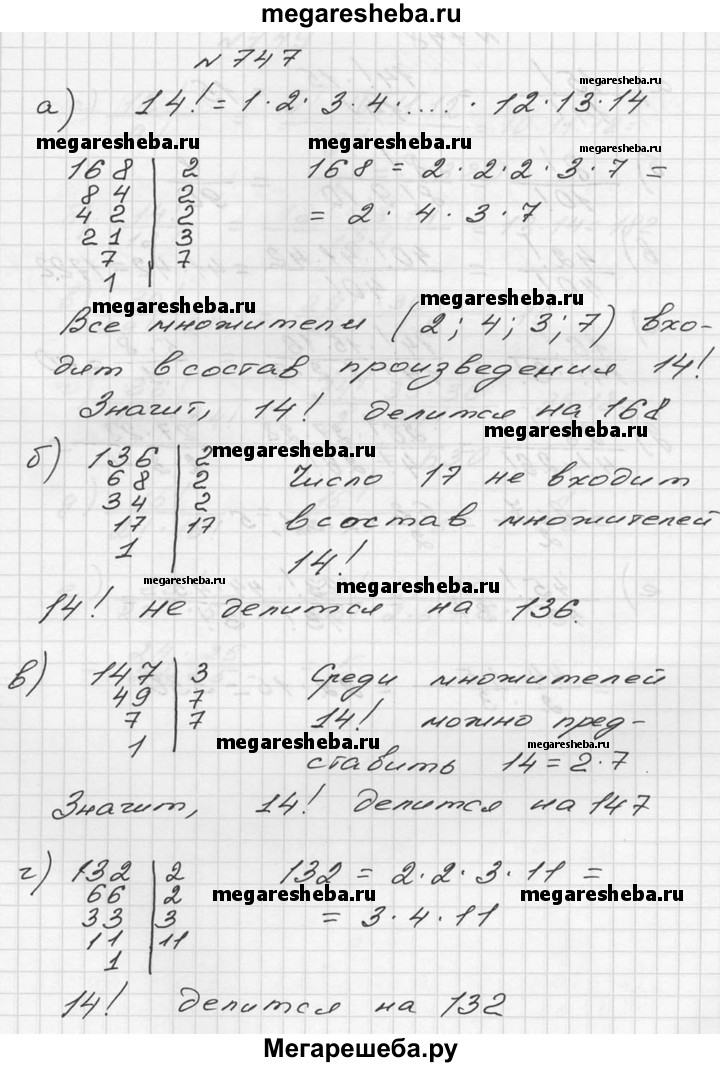 megaresheba.ru
№ 747
megaresheba.ru
а) 14! = 1 · 2 · 3 · 4 · .... · 12 · 13 · 14
megaresheba.ru megaresheba.ru
168 | 2 168 = 2 · 2 · 2 · 3 · 7 =
84 | 2 = 2 · 4 · 3 · 7
42 | 2
21 | 3
7 | 7
1
megaresheba.ru megaresheba.ru
Все множители (2; 4; 3; 7) вхо-
дят в состав произведения 14!
Значит, 14! делится на 168
megaresheba.ru
б) 136 | 2 megaresheba.ru
68 | 2 Число 17 не входит
34 | 2 в состав множителей
17 | 17
1 14!
megaresheba.ru megaresheba.ru
14! не делится на 136.
в) 147 | 3 Среди множителей
49 | 7 14! можно пред-
7 | 7
1 megaresheba.ru megaresheba.ru
ставить 14 = 2 · 7
Значит, 14! делится на 147
г) 132 | 2 132 = 2 · 2 · 3 · 11 =
66 | 2 megaresheba.ru megaresheba.ru
33 | 3 = 3 · 4 · 11
11 | 11
1
14! делится на 132
Мегарешеба.ру